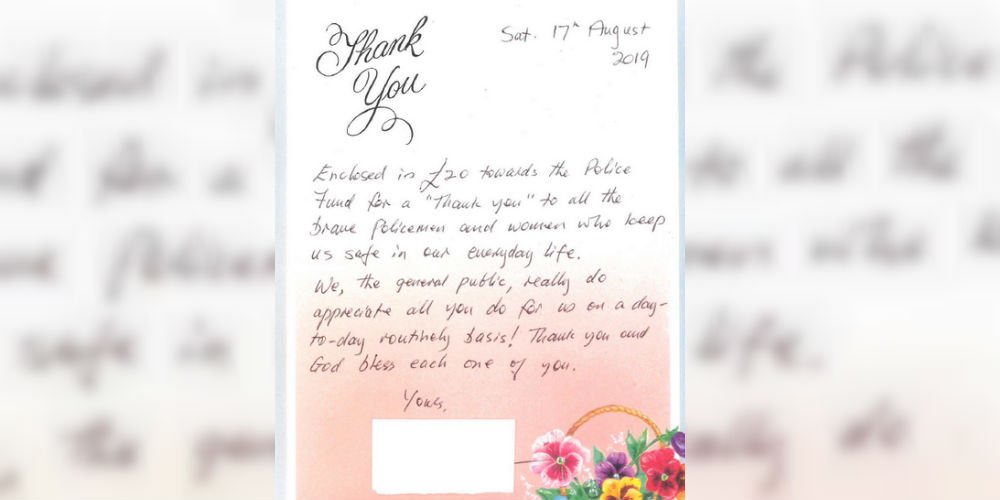 Thank
You
Sat. 17th August
2019
Enclosed is £20 towards the Police
Fund for a "Thank you" to all the
brave Policemen and women who keep
us safe in our everyday life.
We, the general public, really do
appreciate all you do for us on a day-
to-day routinely basis! Thank you and
God bless each one of you.
Yours,